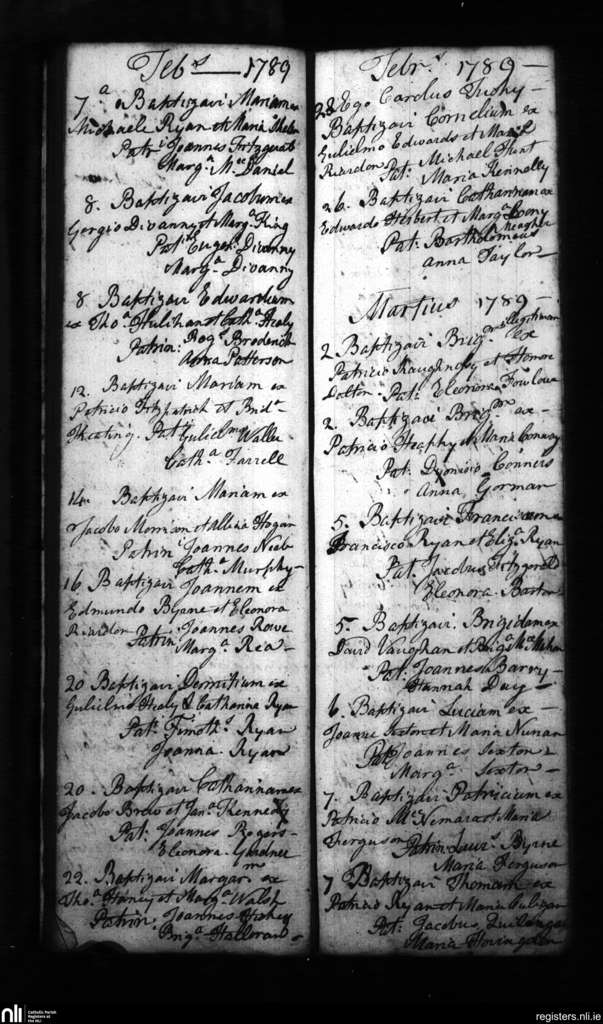 Feb.s — 1789
7.a Baptizavi Mariam ex
Michaele Ryan et Maria
Patri: Joannes Fitzgerald
Marg.a Mc Daniel
8. Baptizavi Jacobum ex
Gergio Divanny et Marg.a King
Pat: Eugen: Divanny
Marg.a Divanny
8 Baptizavi Edwardum
ex Tho.s Hulihan et Cath.a Healy
Patrin: Rog.r Broderick
Anna Patterson
12. Baptizavi Mariam ex
Patricio Fitzpatrick et Brid.a
Keating. Pat: Gulielmus Waller
Cath.a Farrell
14. Baptizavi Mariam ex
Jacobo Morrison et Hogan
Patrin: Joannes
Cath.a Murphy —
16. Baptizavi Joannem ex
Edmundo Byane et Eleonora
Reardon Patrin: Joannes Rowe
Marg.a Rea —
20 Baptizavi Dermitium ex
Gulielmo Healy & Catharina Ryan
Pat: Timoth.s Ryan
Joanna Ryan
20. Baptizavi Catharinam ex
Jacobo Brew et Jan.a Kennedy
Pat: Joannes Rogers —
Eleonora Gardner
22. Baptizavi Margar:m ex
Tho.a Haney et Marg.a Walsh
Patrin: Joannes
Brig.a Halloran —
Febr.s 1789 —
28 Ego Carolus Tuohy —
Baptizavi Cornelium ex
Gulielmo Edwards et Maria
Reardon Pat: Michael Hunt
Maria Kennelly
26. Baptizavi Catharinam ex
Edwardo Herbert et Marg.a
Pat: Bartholomeus Meagher
Anna Taylor —
Martius 1789 —
2. Baptizavi Brig.am illegitimam ex
Patricio et Honora
Dalton. Pat: Eleonora
2. Baptizavi Brig.am ex —
Patricio Heaphy et Maria Conway
Pat: Dyonisio Conners
Anna Gorman
5. Baptizavi Franciscum ex
Francisco Ryan et Eliz.a Ryan
Pat: Jacobus Fitzgerald
Eleonora Barton
5. Baptizavi Brigidam ex
David Vaughan et Brig.a Mc Mahon
Pat: Joannes Barry —
Hannah Day —
6. Baptizavi Luciam ex —
Joanne Sexton et Maria Nunan
Pat: Joannes Sexton &
Marg.a Sexton —
7. Baptizavi Patricium ex
Patricio Mc Nimara et Maria
Ferguson Patrin: Lewis Byrne
Maria Ferguson
7 Baptizavi Thomam ex
Patricio Ryan et Maria
Pat: Jacobus
Maria
nli
Catholic Parish
Registers at
the NLI
registers.nli.ie